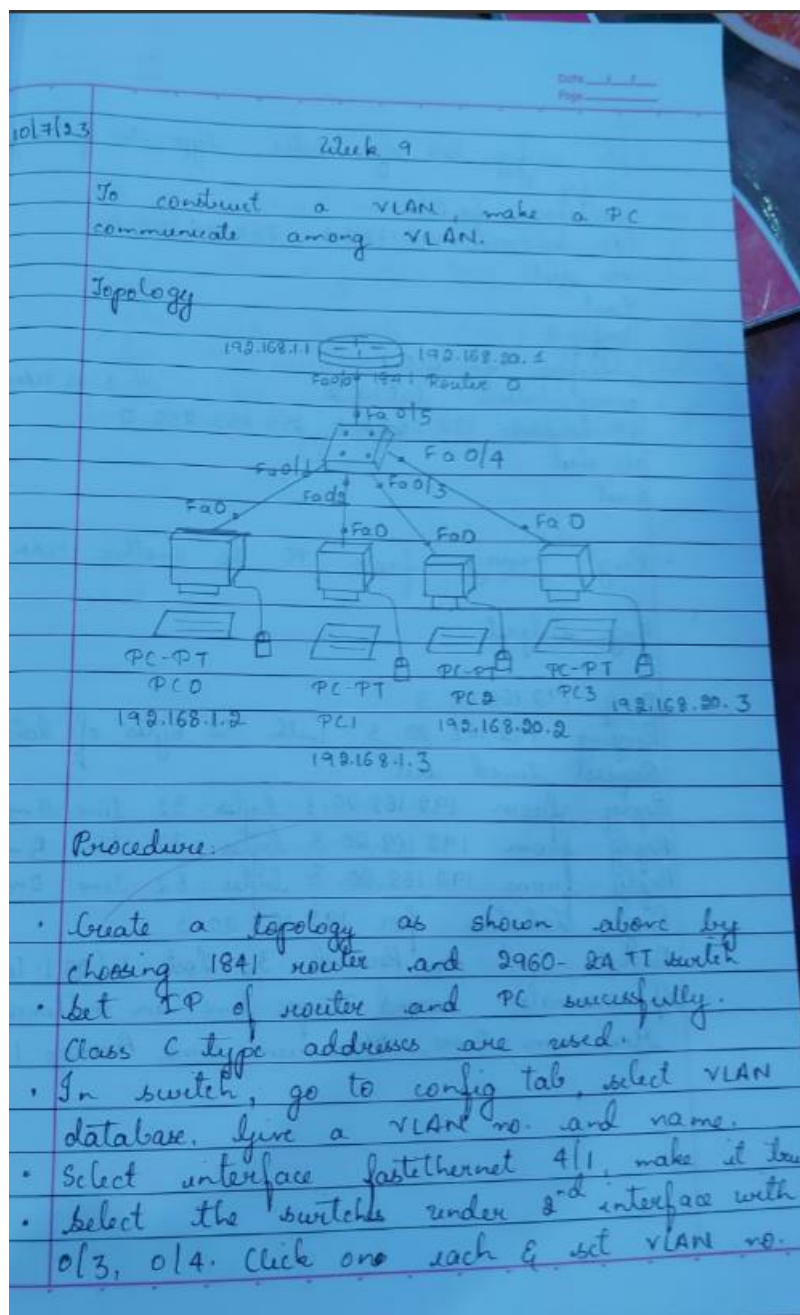 Date / /
Page
10/7/23
Week 9
To construct a VLAN, make a PC
communicate among VLAN.
Topology
192.168.1.1 192.168.20.1
Fa0/0 1841 Router 0
Fa 0/5
Fa 0/4
Fa0/1
Fa0/3
Fa0
Fa0
Fa0
Fa 0
PC-PT PC-PT PC-PT PC-PT
PC0 PC1 PC2 PC3
192.168.1.2 192.168.1.3 192.168.20.2 192.168.20.3
Procedure:
• Create a topology as shown above by
choosing 1841 router and 2960-24 TT switch
• Set IP of router and PC sucessfully.
Class C type addresses are used.
• In switch, go to config tab, select VLAN
database. Give a VLAN no. and name.
• Select interface fastethernet 4/1, make it
• Select the switches under 2nd interface with
0/3, 0/4. Click one each & set VLAN no.